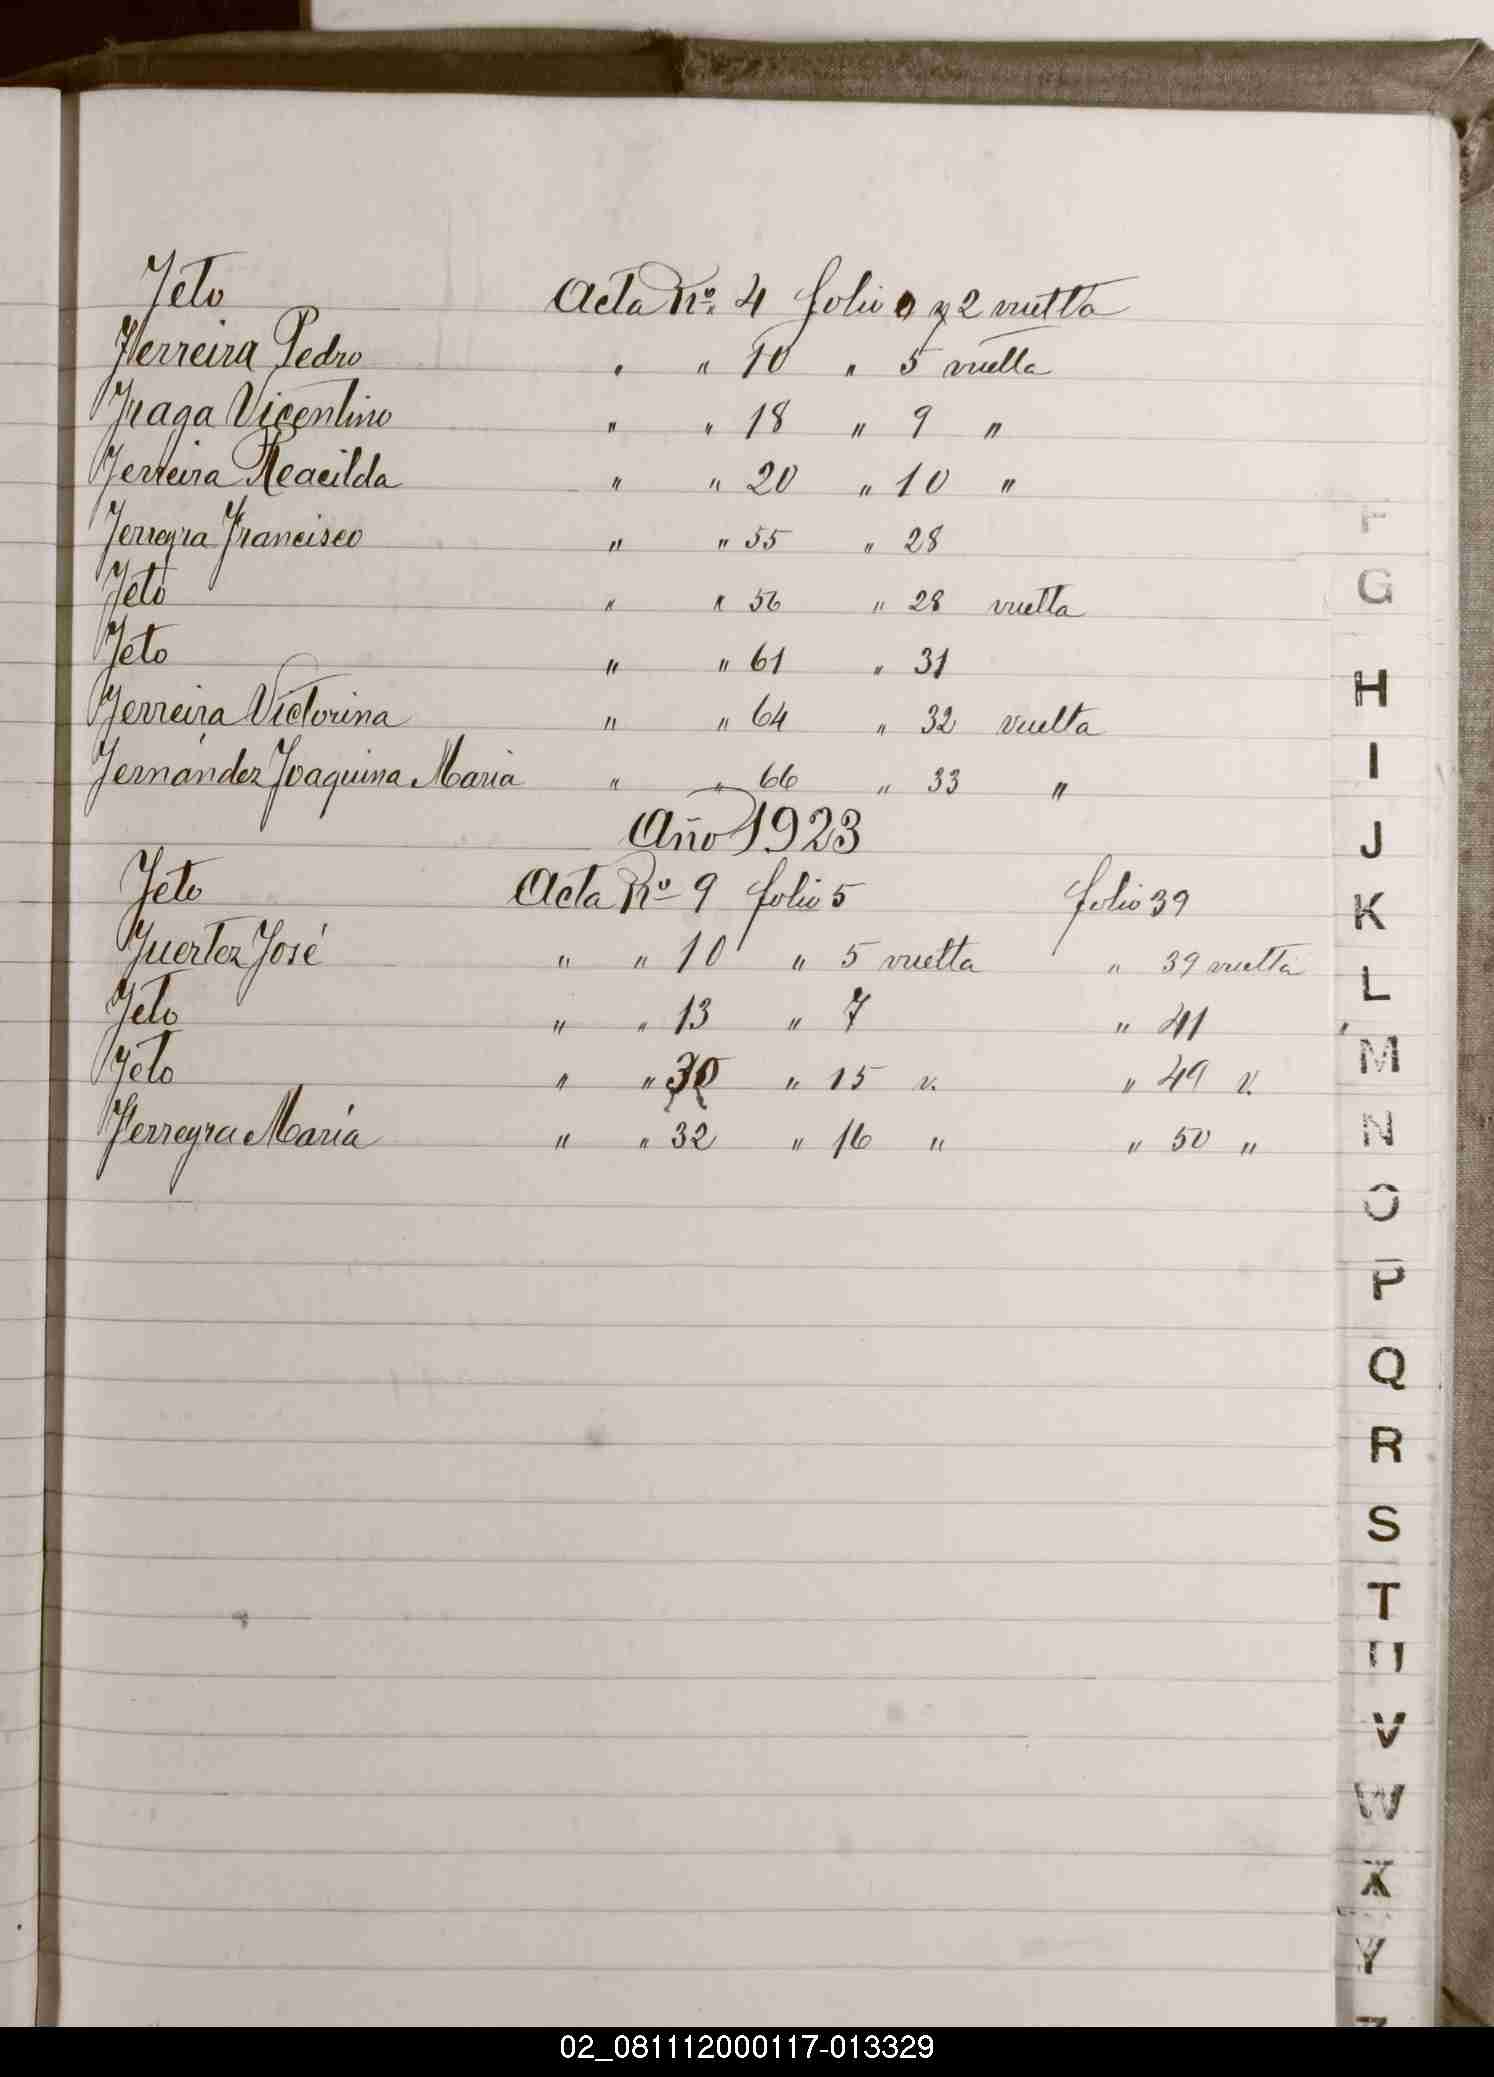 Feto Acta Nº 4 folio y 2 vuelta
Ferreira Pedro " " 10 " 5 vuelta
Fraga Vicentino " " 18 " 9 "
Ferreira " " 20 " 10 "
Ferreyra Francisco " " 55 " 28
Feto " " 56 " 28 vuelta
Feto " " 61 " 31
Ferreira Victorina " " 64 " 32 vuelta
Fernández Joaquina María " " 66 " 33 "
Año 1923
Feto Acta Nº 9 folio 5 folio 39
Fuertez José " " 10 " 5 vuelta " 39 vuelta
Feto " " 13 " 7 " 41
Feto " " 30 " 15 v. " 49 v.
Ferreyra María " " 32 " 16 " " 50 "
F
G
H
I
J
K
L
M
N
O
P
Q
R
S
T
U
V
W
X
Y
Z
02_081112000117-013329